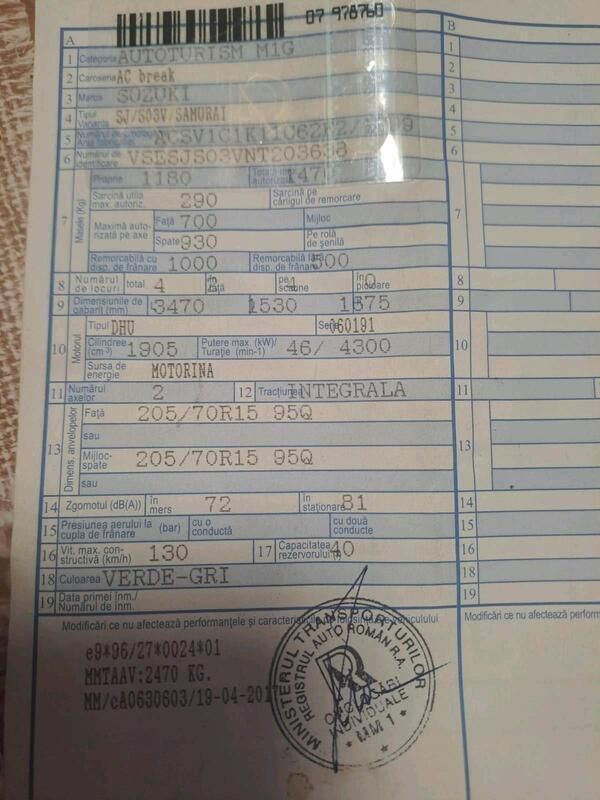 07 978760
A
B
1 Categoria AUTOTURISM M1G
2 Caroseria AC break
3 Marca SUZUKI
4 Tipul Varianta SJ/S03V/SAMURAI
5 Numărul de
6 Numărul de identificare VSESJS03VNT203638
7 Masele (Kg)
Proprie 1180 Totală max. autoriz.
Sarcină utilă max. autoriz. 290 Sarcină pe cârligul de remorcare
Maximă auto- rizată pe axe Faţă 700 Mijloc
Spate 930 Pe rolă de şenilă
Remorcabilă cu disp. de frânare 1000 Remorcabilă fără disp. de frânare 500
8 Numărul de locuri total 4 în faţă pe scaune în picioare 0
9 Dimensiunile de gabarit (mm) 3470 1530 1875
10 Motorul
Tipul DHU Seria 060191
Cilindree (cm³) 1905 Putere max. (kW)/ Turaţie (min-1) 46/ 4300
Sursa de energie MOTORINA
11 Numărul axelor 2 12 Tracţiunea INTEGRALA
13 Dimens. anvelopelor
Faţă 205/70R15 95Q
sau
Mijloc- spate 205/70R15 95Q
sau
14 Zgomotul (dB(A)) în mers 72 în staţionare 81
15 Presiunea aerului la cupla de frânare (bar) cu o conductă cu două conducte
16 Vit. max. con- structivă (km/h) 130 17 Capacitatea rezervorului 40
18 Culoarea VERDE-GRI
19 Data primei înm./ Numărul de înm.
Modificări ce nu afectează performanţele şi caracteristicile de folosinţă ale vehiculului
Modificări ce nu afectează perform
e9*96/27*0024*01
MMTAAV:2470 KG.
MM/cA0630603/19-04-201
MINISTERUL TRANSPORTURILOR
REGISTRUL AUTO ROMÂN R.A.
OMOLOGĂRI
INDIVIDUALE
* MM 1 *
1
2
3
4
5
6
7
8
9
10
11
13
14
15
16
18
19